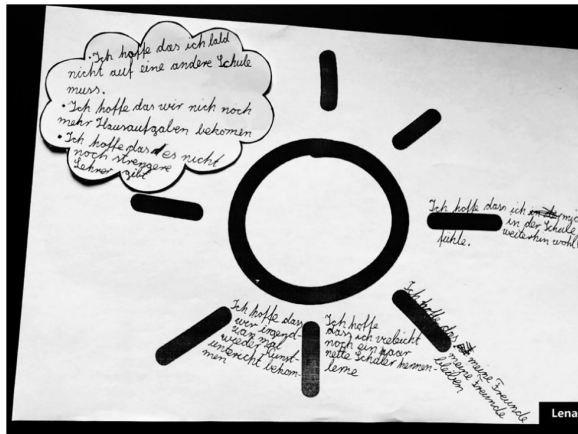 • Ich hoffe das ich bald
nicht auf eine andere Schule
muss.
• Ich hoffe das wir nich noch
mehr Hausaufgaben bekomen
• Ich hoffe das es nicht
noch strengere
Lehrer gibt
Ich hoffe dass ich mich
in der Schule
weiterhin wohl
fühle.
Ich hoffe das
meine Freunde
meine Freunde
bleiben
Ich hoffe
das ich vieleicht
noch ein paar
nette Schüler kennen-
lerne
Ich hoffe das
wir irgend-
wan mal
wieder Kunst-
unterricht bekom-
men
Lena